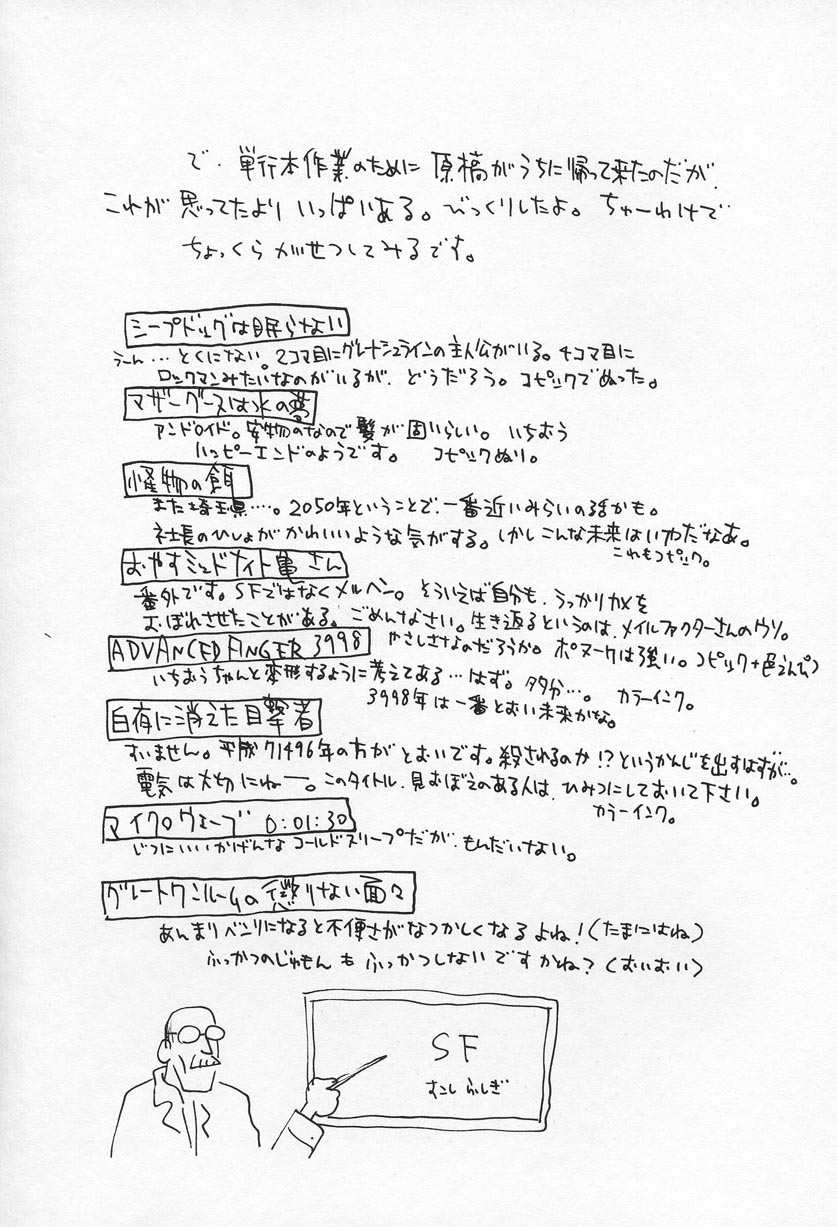 で、単行本作業のために原稿がうちに帰って来たのだが、
これが思ってたよりいっぱいある。びっくりしたよ。ちゅーわけで
ちょっくらかいせつしてみるです。
シープドッグは眠らない
うーん…とくにない。2コマ目にグレートシュラインの主人公がいる。4コマ目に
ロックマンみたいなのがいるが、どうだろう。コピックでぬった。
マザーグースは氷の夢
アンドロイド。安物のなので髪が固いらしい。いちおう
ハッピーエンドのようです。コピックぬり。
怪物の餌
また埼玉県…。2050年ということで、一番近いみらいの話かも。
社長のひしょがかわいいような気がする。しかしこんな未来はいやだなあ。
これもコピック。
おやすミッドナイト亀さん
番外です。SFではなくメルヘン。そういえば自分も、うっかりカメを
おぼれさせたことがある。ごめんなさい。生き返るというのは、メイルファクターさんのウソ。
やさしさなのだろうか。ポヌークは強い。コピック+色えんぴつ
ADVANCED FINGER 3998
いちおうちゃんと変形するように考えてある…はず。多分…。カラーインク。
3998年は一番とおい未来かな。
白夜に消えた目撃者
すいません。平成71496年の方がとおいです。殺されるのか!?というかんじを出すはずが…。
電気は大切にねー。このタイトル、見おぼえのある人は、ひみつにしておいて下さい。
カラーインク。
マイクロウェーブ 0:01:30
じつにいいかげんなコールドスリープだが、もんだいない。
グレートワンルームの懲りない面々
あんまりベンリになると不便さがなつかしくなるよね!(たまにはね)
ふっかつのじゅもんもふっかつしないですかね?(おいおい)
SF
すこしふしぎ